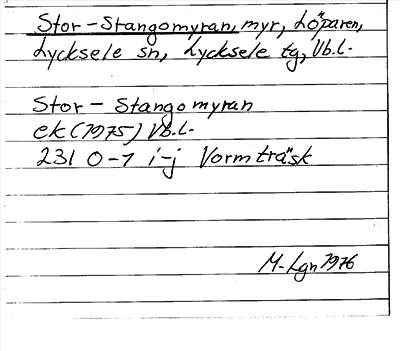 Stor-Stangomyran, myr, Löparen,
Lycksele sn, Lycksele tg, Vb.l.
Stor-Stangomyran
ek (1975) Vb.l.
231 0-1 i-j Vormträsk
M-Lgn 1976